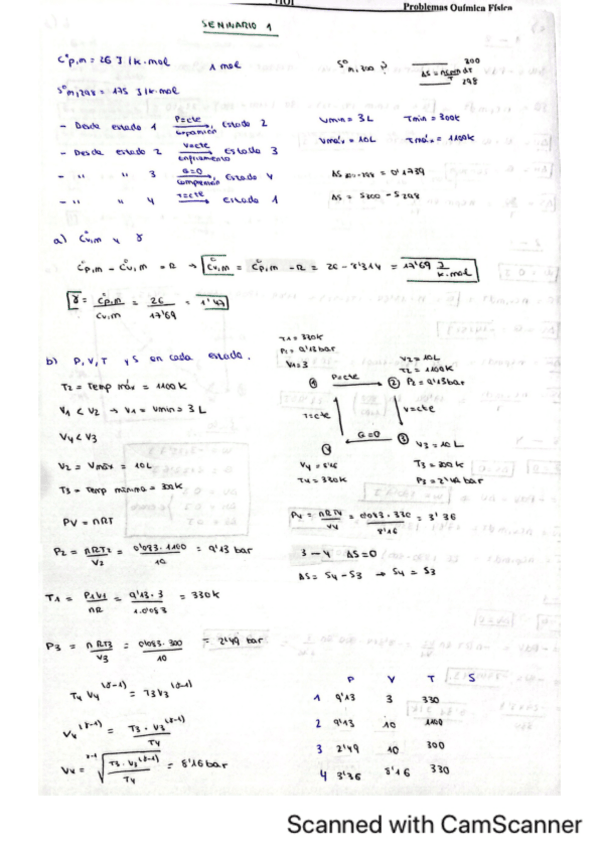 Problemas Química Física
SEMINARIO 1
C°p,m = 26 J/k·mol 1 mol
S°m,298 = 175 J/k·mol
S°m,300 ?
300
298
- Desde estado 1 P=cte expansión Estado 2
- Desde estado 2 V=cte enfriamento Estado 3
- " " 3 Q=0 compresión Estado 4
- " " 4 T=cte Estado 1
Vmin = 3 L Tmin = 300k
Vmáx = 10L Tmáx = 1100k
= 0'1739
ΔS = S300 - S298
a) Cv,m y γ
Cp,m - Cv,m = R → Cv,m = Cp,m - R = 26 - 8'314 = 17'69 J/k·mol
γ = Cp,m/Cv,m = 26/17'69 = 1'47
b) P, V, T y S en cada estado.
T2 = Temp máx = 1100 K
V1 < V2 → V1 = Vmin = 3 L
V4 < V3
V2 = Vmáx = 10L
T3 = Temp mínima = 300k
PV = nRT
P2 = nRT2/V2 = 0'083·1100/10 = 9'13 bar
T1 = P1V1/nR = 9'13·3/1·0'083 = 330k
P3 = nRT3/V3 = 0'083·300/10 = 2'49 bar
T4 V4^(γ-1) = T3V3^(γ-1)
V4^(γ-1) = T3·V3^(γ-1)/T4
V4 = γ-1√(T3·V3^(γ-1)/T4) = 8'16 bar
T1 = 330k
P1 = 9'13 bar
V1 = 3
1 P=cte 2
V2 = 10L
T2 = 1100K
P2 = 9'13 bar
T=cte V=cte
4 Q=0 3
V3 = 10 L
T3 = 300 k
P3 = 2'49 bar
V4 = 8'16
T4 = 330k
P4 = nRT4/V4 = 0'083·330/8'16 = 3'36
3 - 4 ΔS=0
ΔS = S4 - S3 → S4 = S3
P V T S
1 9'13 3 330
2 9'13 10 1100
3 2'49 10 300
4 3'36 8'16 330
Scanned with CamScanner